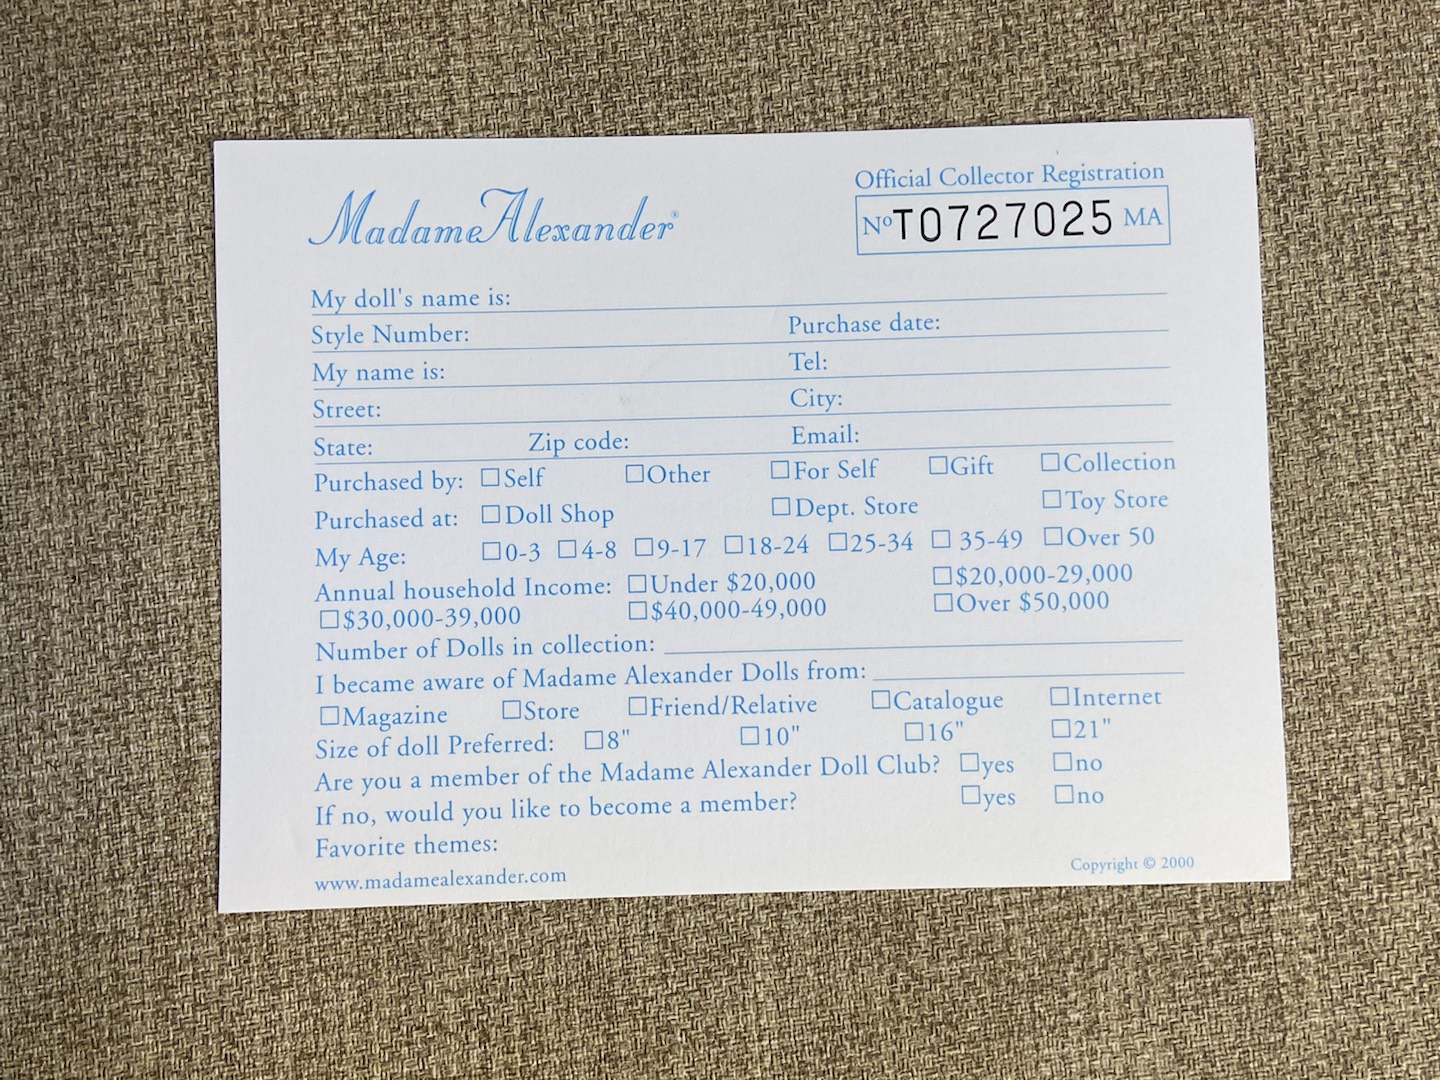 Madame Alexander®
Official Collector Registration
Nº T0727025 MA
My doll's name is:
Style Number: Purchase date:
My name is: Tel:
Street: City:
State: Zip code: Email:
Purchased by: □Self □Other □For Self □Gift □Collection
Purchased at: □Doll Shop □Dept. Store □Toy Store
My Age: □0-3 □4-8 □9-17 □18-24 □25-34 □ 35-49 □Over 50
Annual household Income: □Under $20,000 □$20,000-29,000
□$30,000-39,000 □$40,000-49,000 □Over $50,000
Number of Dolls in collection:
I became aware of Madame Alexander Dolls from:
□Magazine □Store □Friend/Relative □Catalogue □Internet
Size of doll Preferred: □8" □10" □16" □21"
Are you a member of the Madame Alexander Doll Club? □yes □no
If no, would you like to become a member? □yes □no
Favorite themes:
www.madamealexander.com
Copyright © 2000